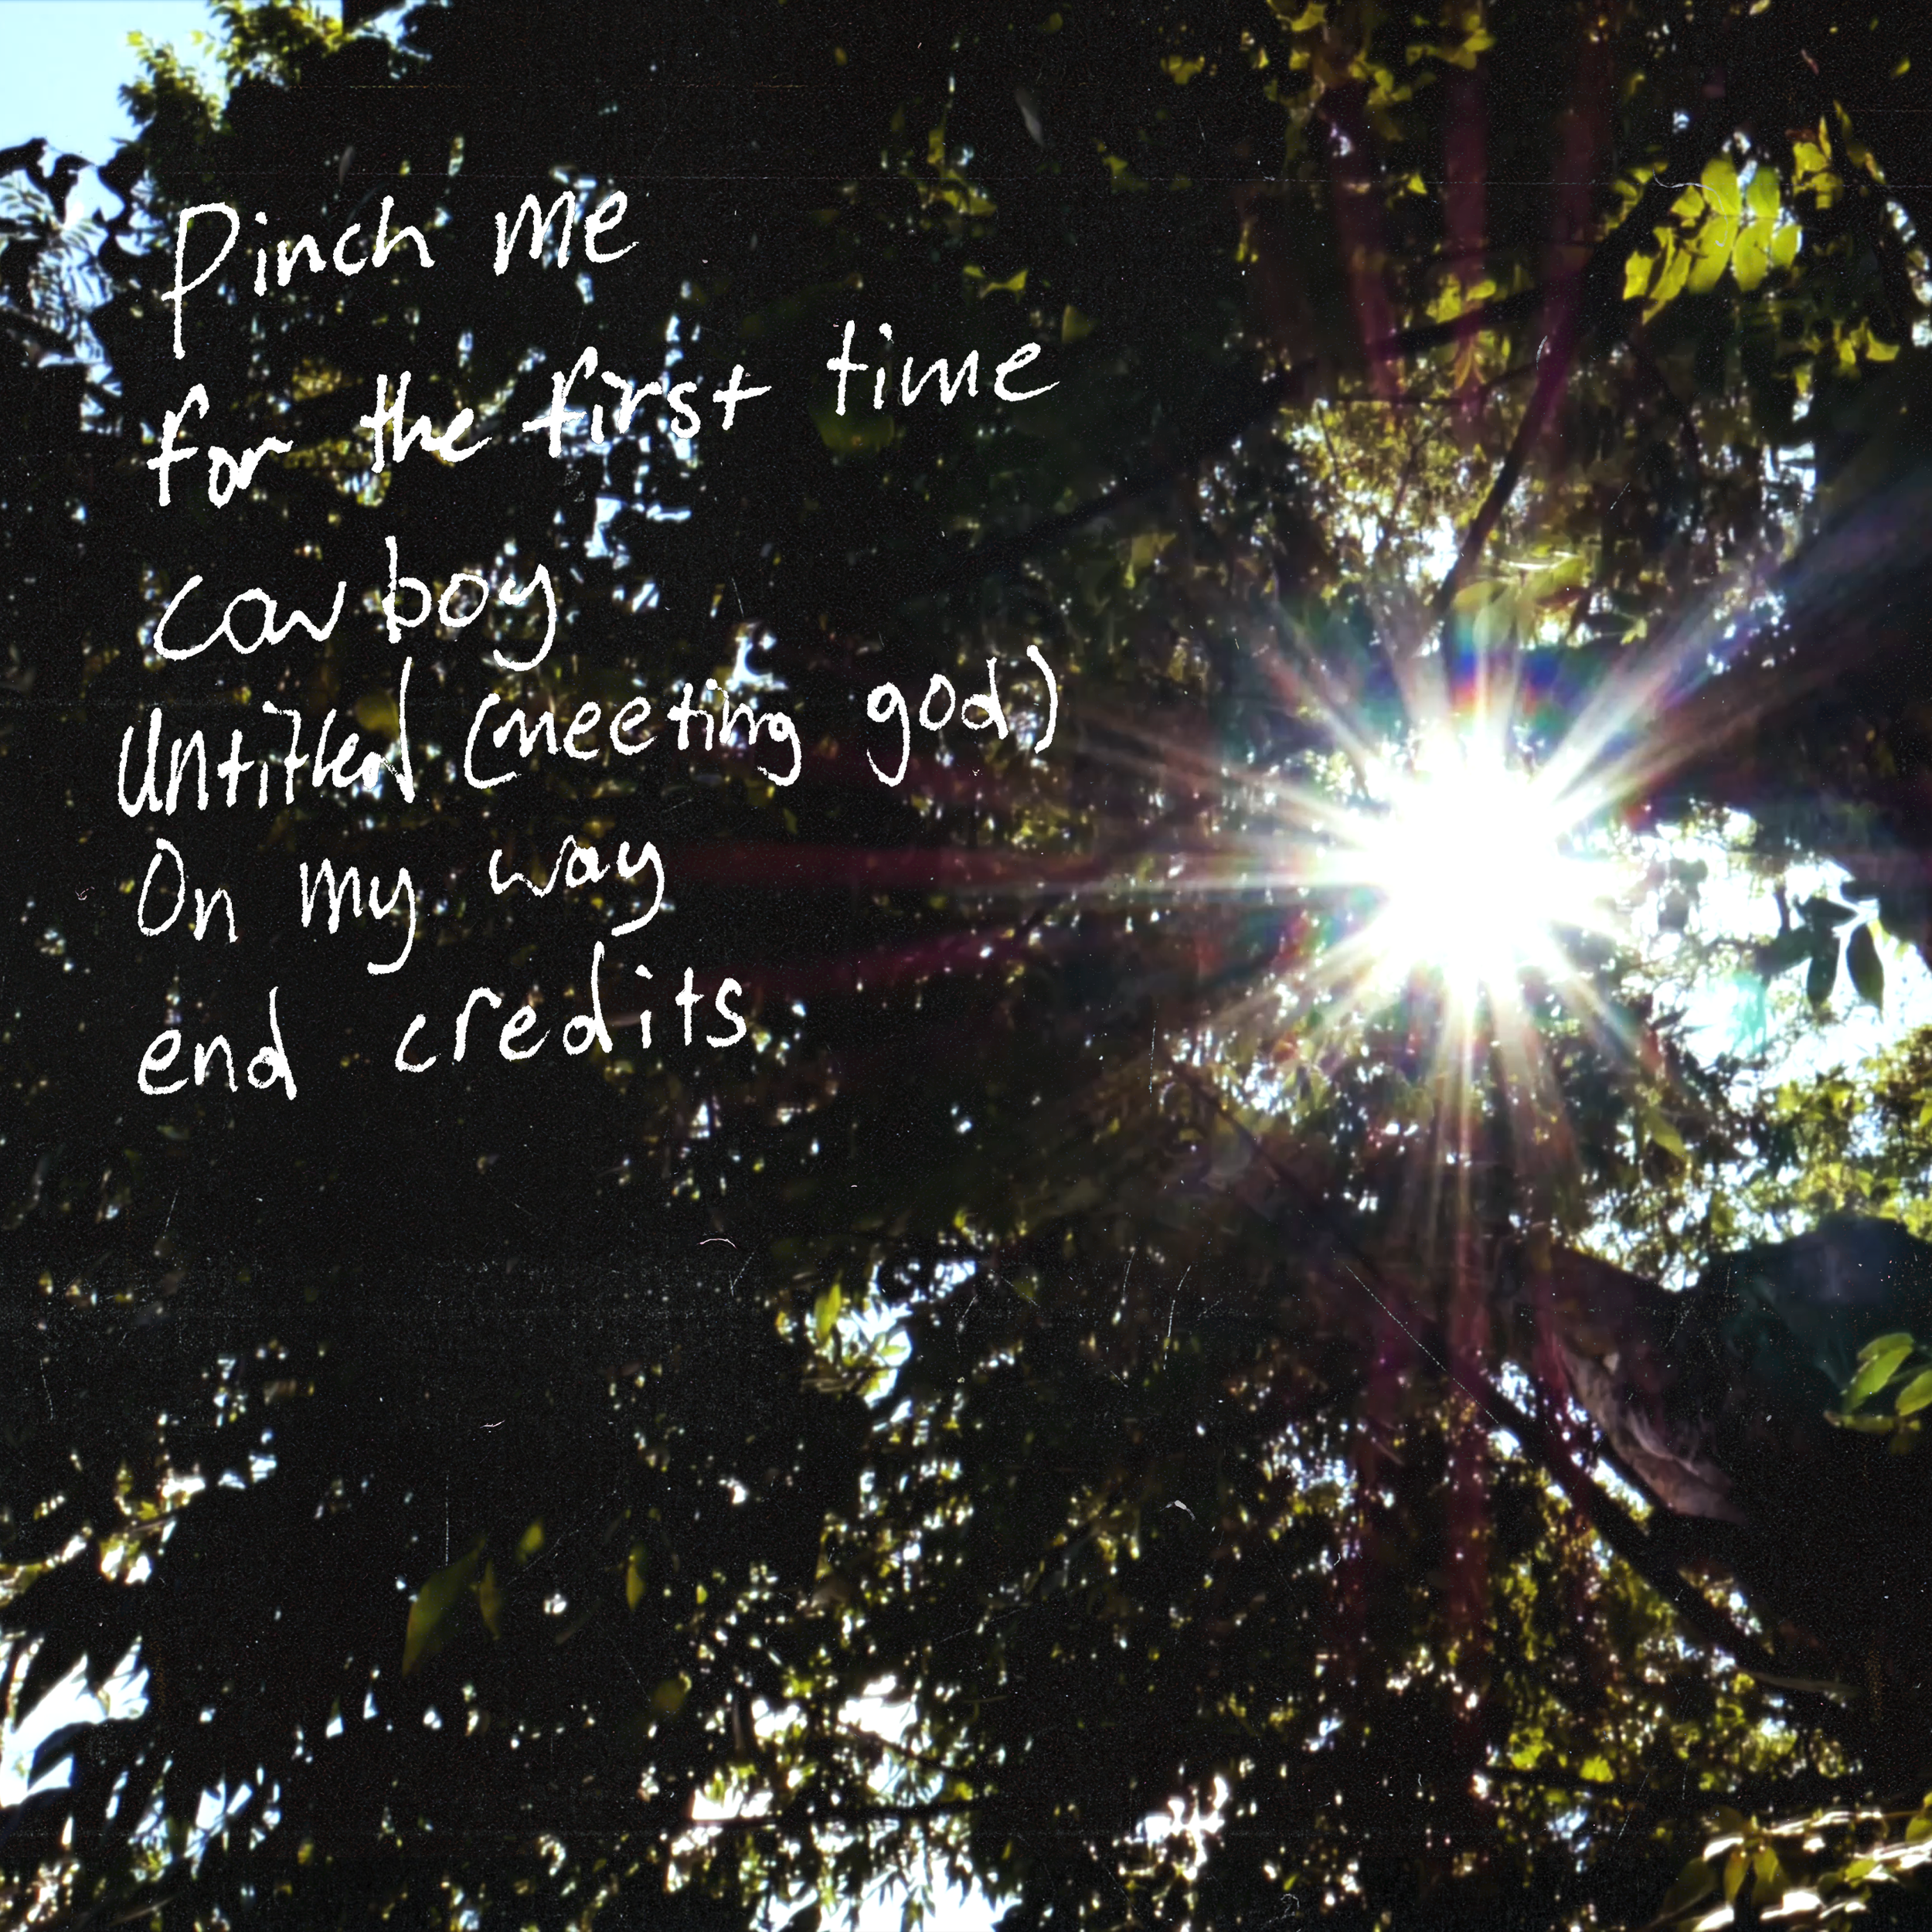 Pinch me
for the first time
cowboy
Untitled (meeting god)
On my way
end credits